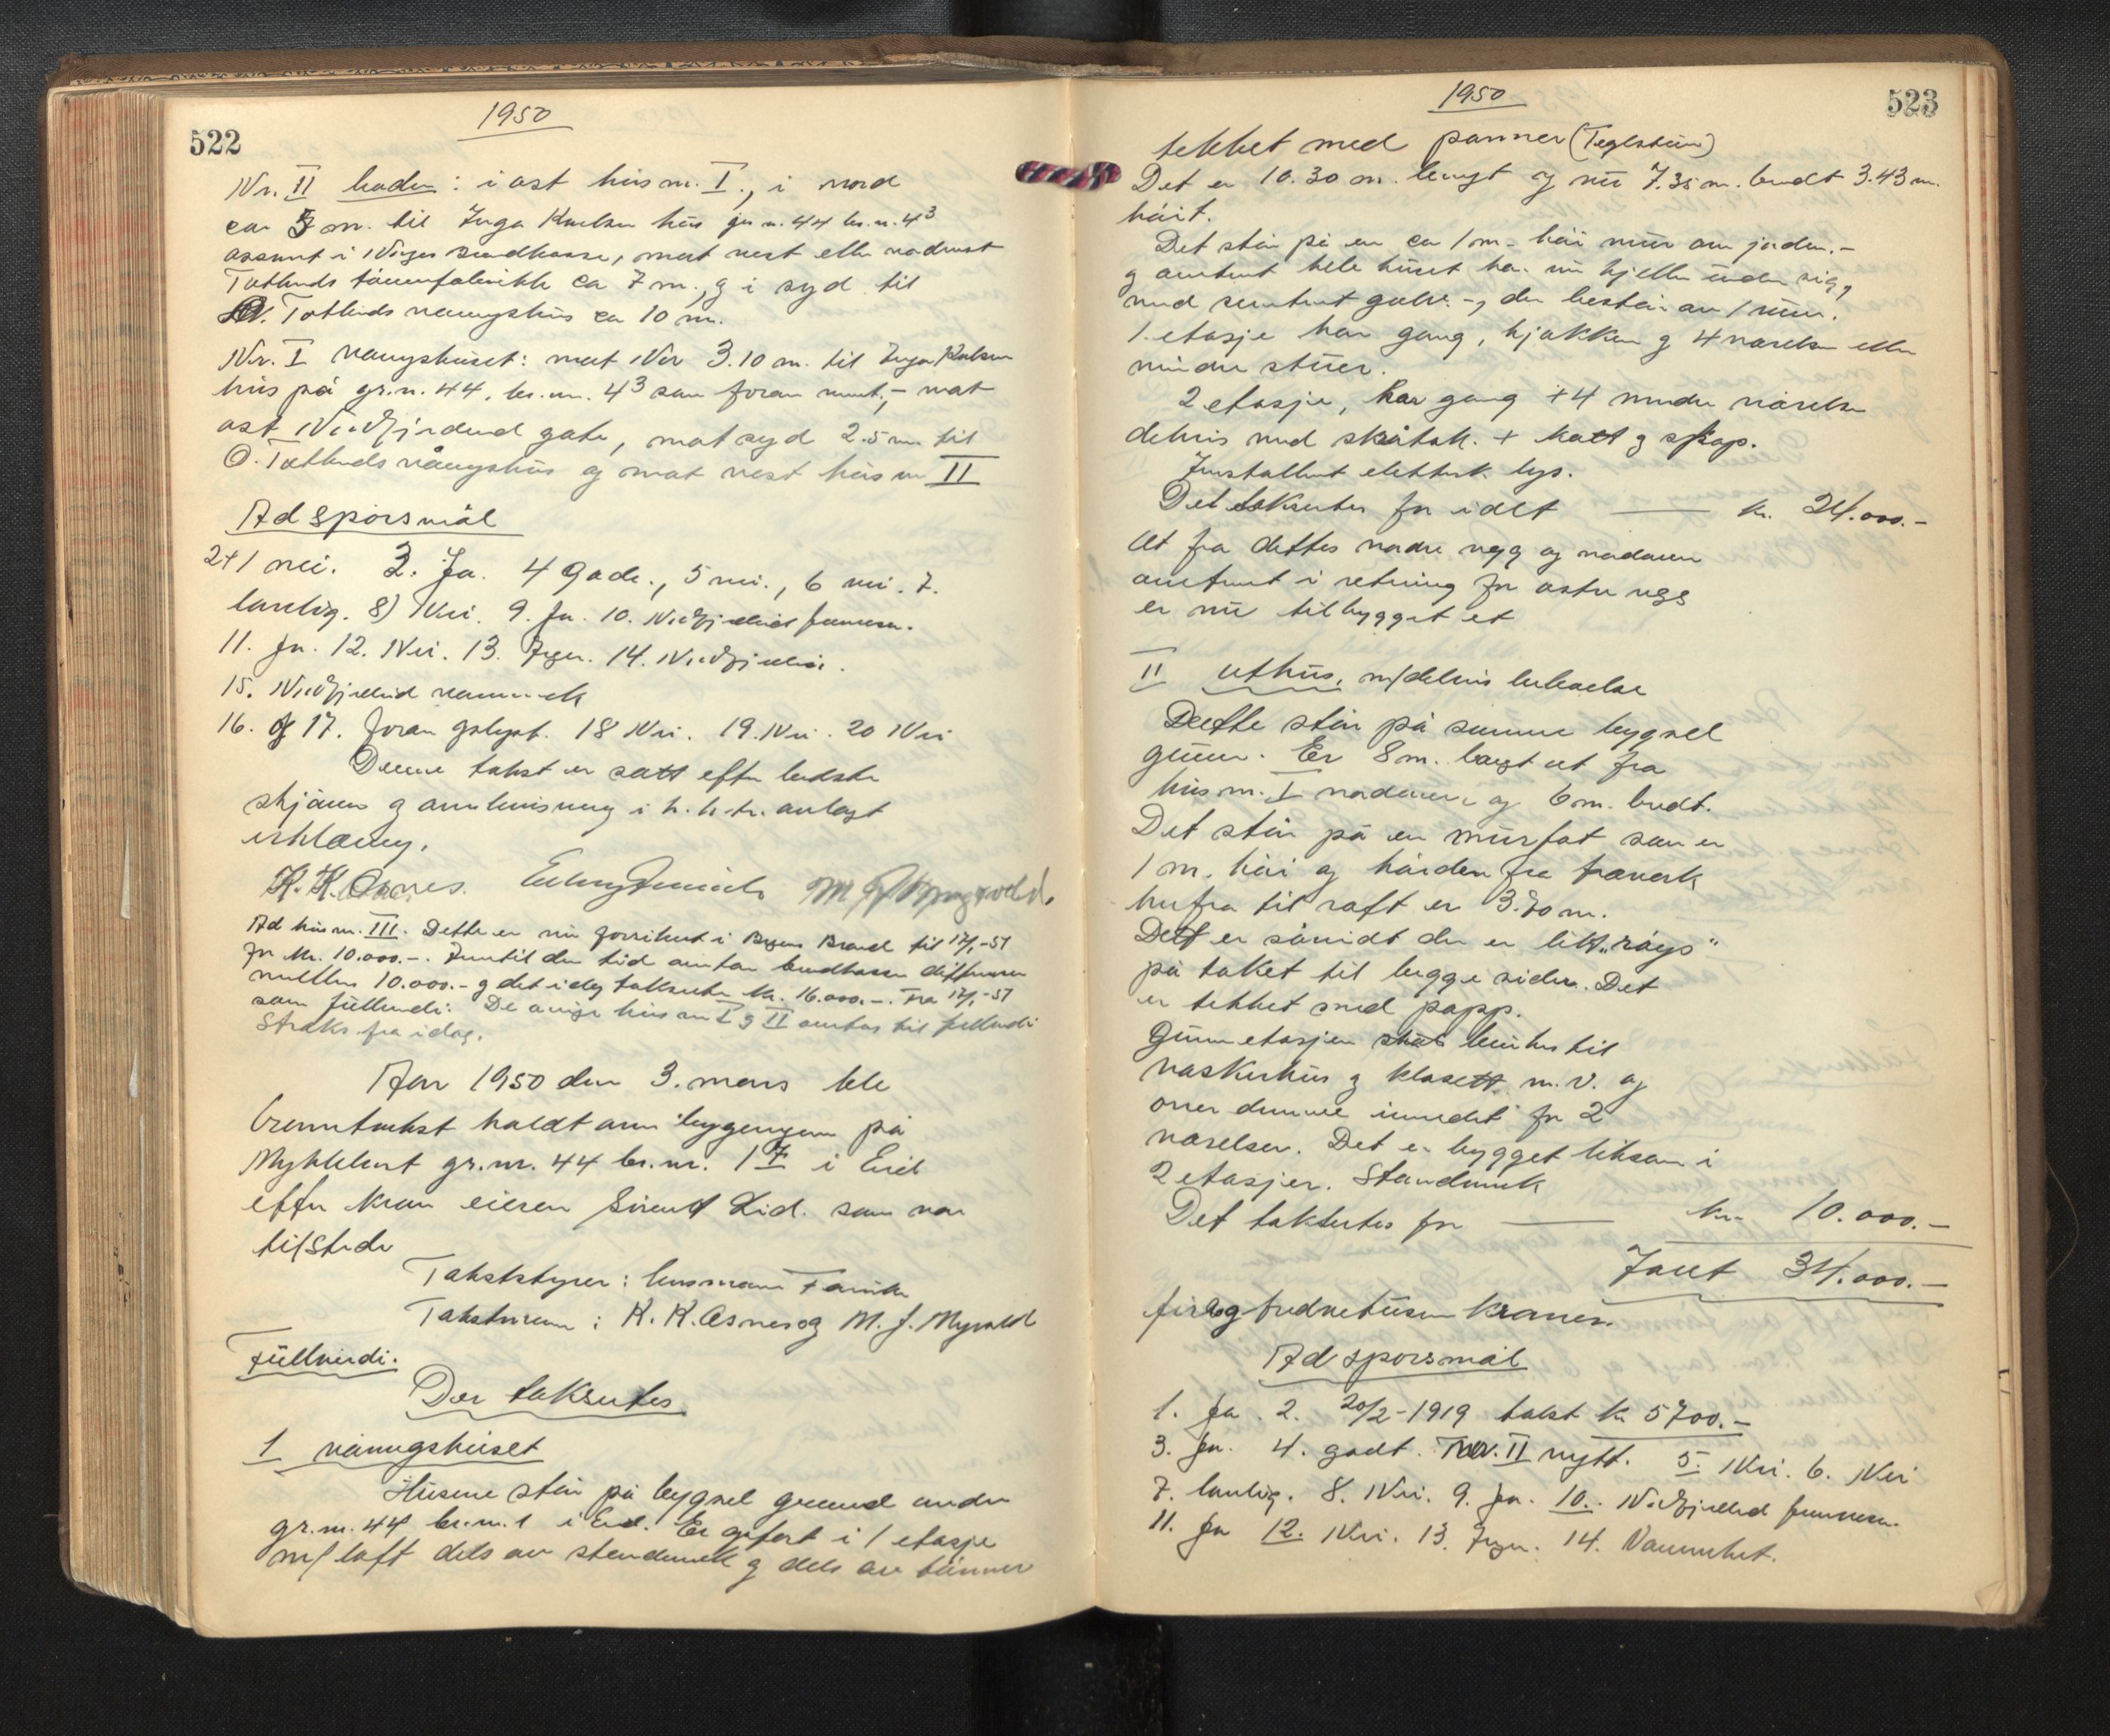 522
1950
Nr. II boden: i ost hus nr. I., i nord
ca 3 m. til Inga Knutsen hus gr.n. 44 br.n. 4³
assurert i Norges brandkasse, mot vest eller nordvest
Totlands tønnefabrikk ca 7 m., og i syd til
O. Totlands vånyshus ca 10 m.
Nr. I vånyshuset: mot Nor 3.10 m. til Inga Knutsen
hus på gr.n. 44, br.nr. 4³ som foran nevnt, - mot
ost Nordfjordeid gate, mot syd 2.5 m til
O. Totlands vånyshus og mot vest hus nr II
Ad spørsmål
2+1 nei. 3. Ja. 4 Gode., 5 nei., 6 nei. 7.
lanlig. 8) Nei. 9. Ja. 10. Nordfjordeid
11. Ja. 12. Nei. 13. Ingen. 14. Nordfjordeid.
15. Nordfjordeid vannverk
16. og 17. foran oplyst. 18 Nei. 19. Nei. 20 Nei
Denne takst er satt efter bedste
skjønn og anvisning i h. h. t. avlagt
erklæring.
K. K. Osnes. M. J. Myrvold.
Ad hus nr. III. Dette er nu forsikret i Bygnes Brand til 17/1-51
for kr. 10.000.-. Inntil den tid antar brandkassen differensen
mellem 10.000.- og det i dag takserte kr. 16.000.-. Fra 17/1-51
som fullverdi: De øvrige hus nr I og II antas til fullverdi
straks fra i dag.
Aar 1950 den 3. mars ble
branntakst holdt over bygningen på
Myklebust gr.nr. 44 br.nr. 17 i Eid
efter krav eieren Sivert Lid. som var
tilstede
Takststyrer: lensmann
Takstmenn: K. K. Osnes og M. J. Myrvold
Fullverdi.
Der takseres
1 vånyngshuset
Husene står på bygsel grund under
gr.nr. 44 br.nr. 1 i Eid. Er opført i 1 etasje
m/ loft dels av stenderverk og dels av tømmer
523
1950
tekket med panner (Teglstein)
Det er 10.30 m. langt og nu 7.35 m. bredt 3.43 m.
høit.
Det står på en ca 1 m. høi mur over jorden. -
og omtrent hele huset har nu kjeller under sig,
med sementert golv. -, den består av 1 rum.
1. etasje har gang, kjøkken og 4 værelser eller
mindre stuer.
2 etasje, har gang + 4 mindre værelser
delvis med skråtak. + kott og skap.
Installert elektrisk lys.
Det takseres for idet — kr. 24.000.-
Ut fra dettes nordre vegg og nordover
omtrent i retning for østre vegg
er nu tilbygget et
II uthus, m/delvis beboelse
Dette står på samme bygsel
grunn. Er 8 m. langt ut fra
hus nr. I nordover og 6 m. bredt.
Det står på en murfot som er
1 m. høi og høiden fra treverk
herfra til raft er 3.80 m.
Det er såvidt der er litt "røys"
på taket til begge sider. Det
er tekket med papp.
Grunnetasjen skal brukes til
vaskerhus og klosett m.v. og
over denne innredet for 2
værelser. Det er bygget liksom i
2 etasjer. Standverk
Det takseres for — kr. 10.000.-
Ialt 34.000.-
fire og tredvetusen kroner.
Ad spørsmål
1. Ja. 2. 20/2-1919 takst kr 5700.-
3. Ja. 4. godt. Nr. II nytt. 5. Nei. 6. Nei
7. lanlig. 8. Nei. 9. Ja. 10. Nordfjordeid
11. Ja 12. Nei. 13. Ingen. 14. Vannverket.